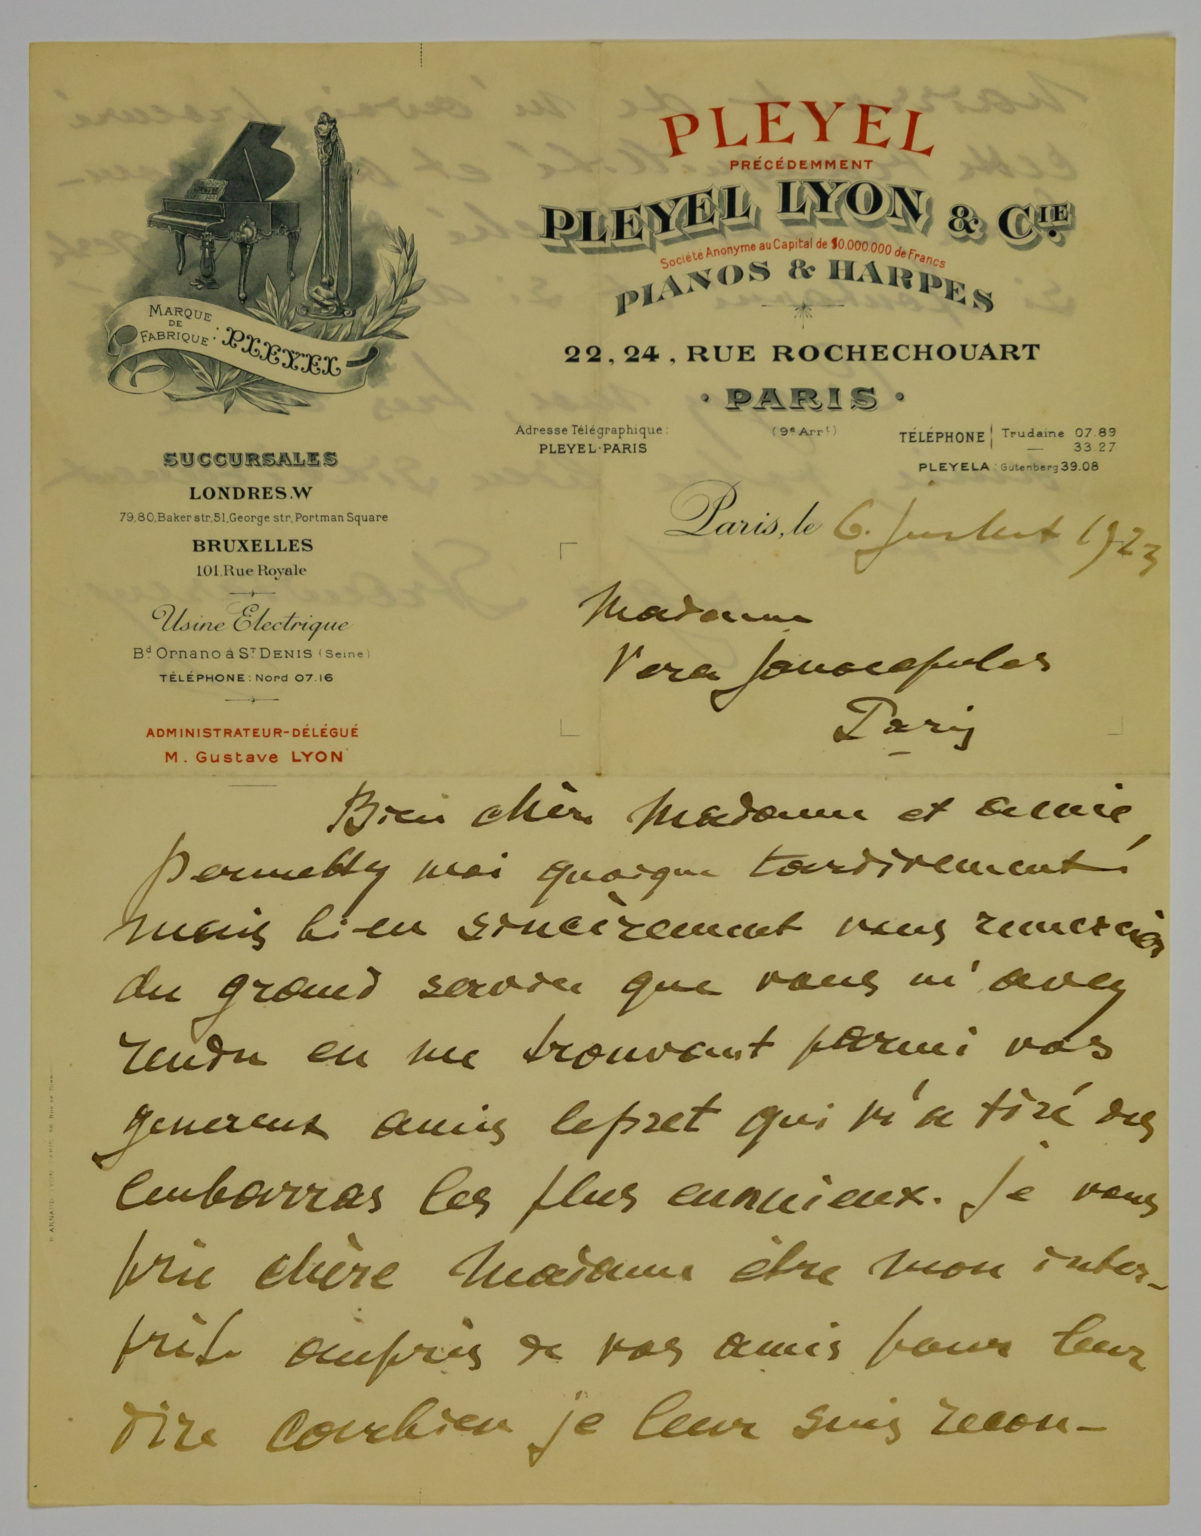 MARQUE
DE
FABRIQUE : PLEYEL
PLEYEL
PRÉCÉDEMMENT
PLEYEL LYON & CIE.
Société Anonyme au Capital de 10.000.000 de Francs
PIANOS & HARPES
22, 24, RUE ROCHECHOUART
• PARIS •
(9e Arrt)
Adresse Télégraphique:
PLEYEL-PARIS
TÉLÉPHONE Trudaine 07.89
— 33 27
PLEYELA : Gutenberg 39.08
SUCCURSALES
LONDRES.W
79,80,Baker str,51,George str, Portman Square
BRUXELLES
101.Rue Royale
Usine Électrique
Bd. Ornano à ST DENIS (Seine)
TÉLÉPHONE: Nord 07.16
ADMINISTRATEUR-DÉLÉGUÉ
M. Gustave LYON
Paris, le 6. Juillet 1923
Madame
Vera Janacopulos
Paris
Bien chère Madame et amie,
permettez moi quoique tardivement
mais bien sincèrement vous remercier
du grand service que vous m'avez
rendu en me trouvant parmi vos
genereux amis le pret qui m'a tiré des
embarras les plus ennuieux. Je vous
prie chère Madame être mon inter-
prète auprès de vos amis pour leur
dire combien je leur suis recon-